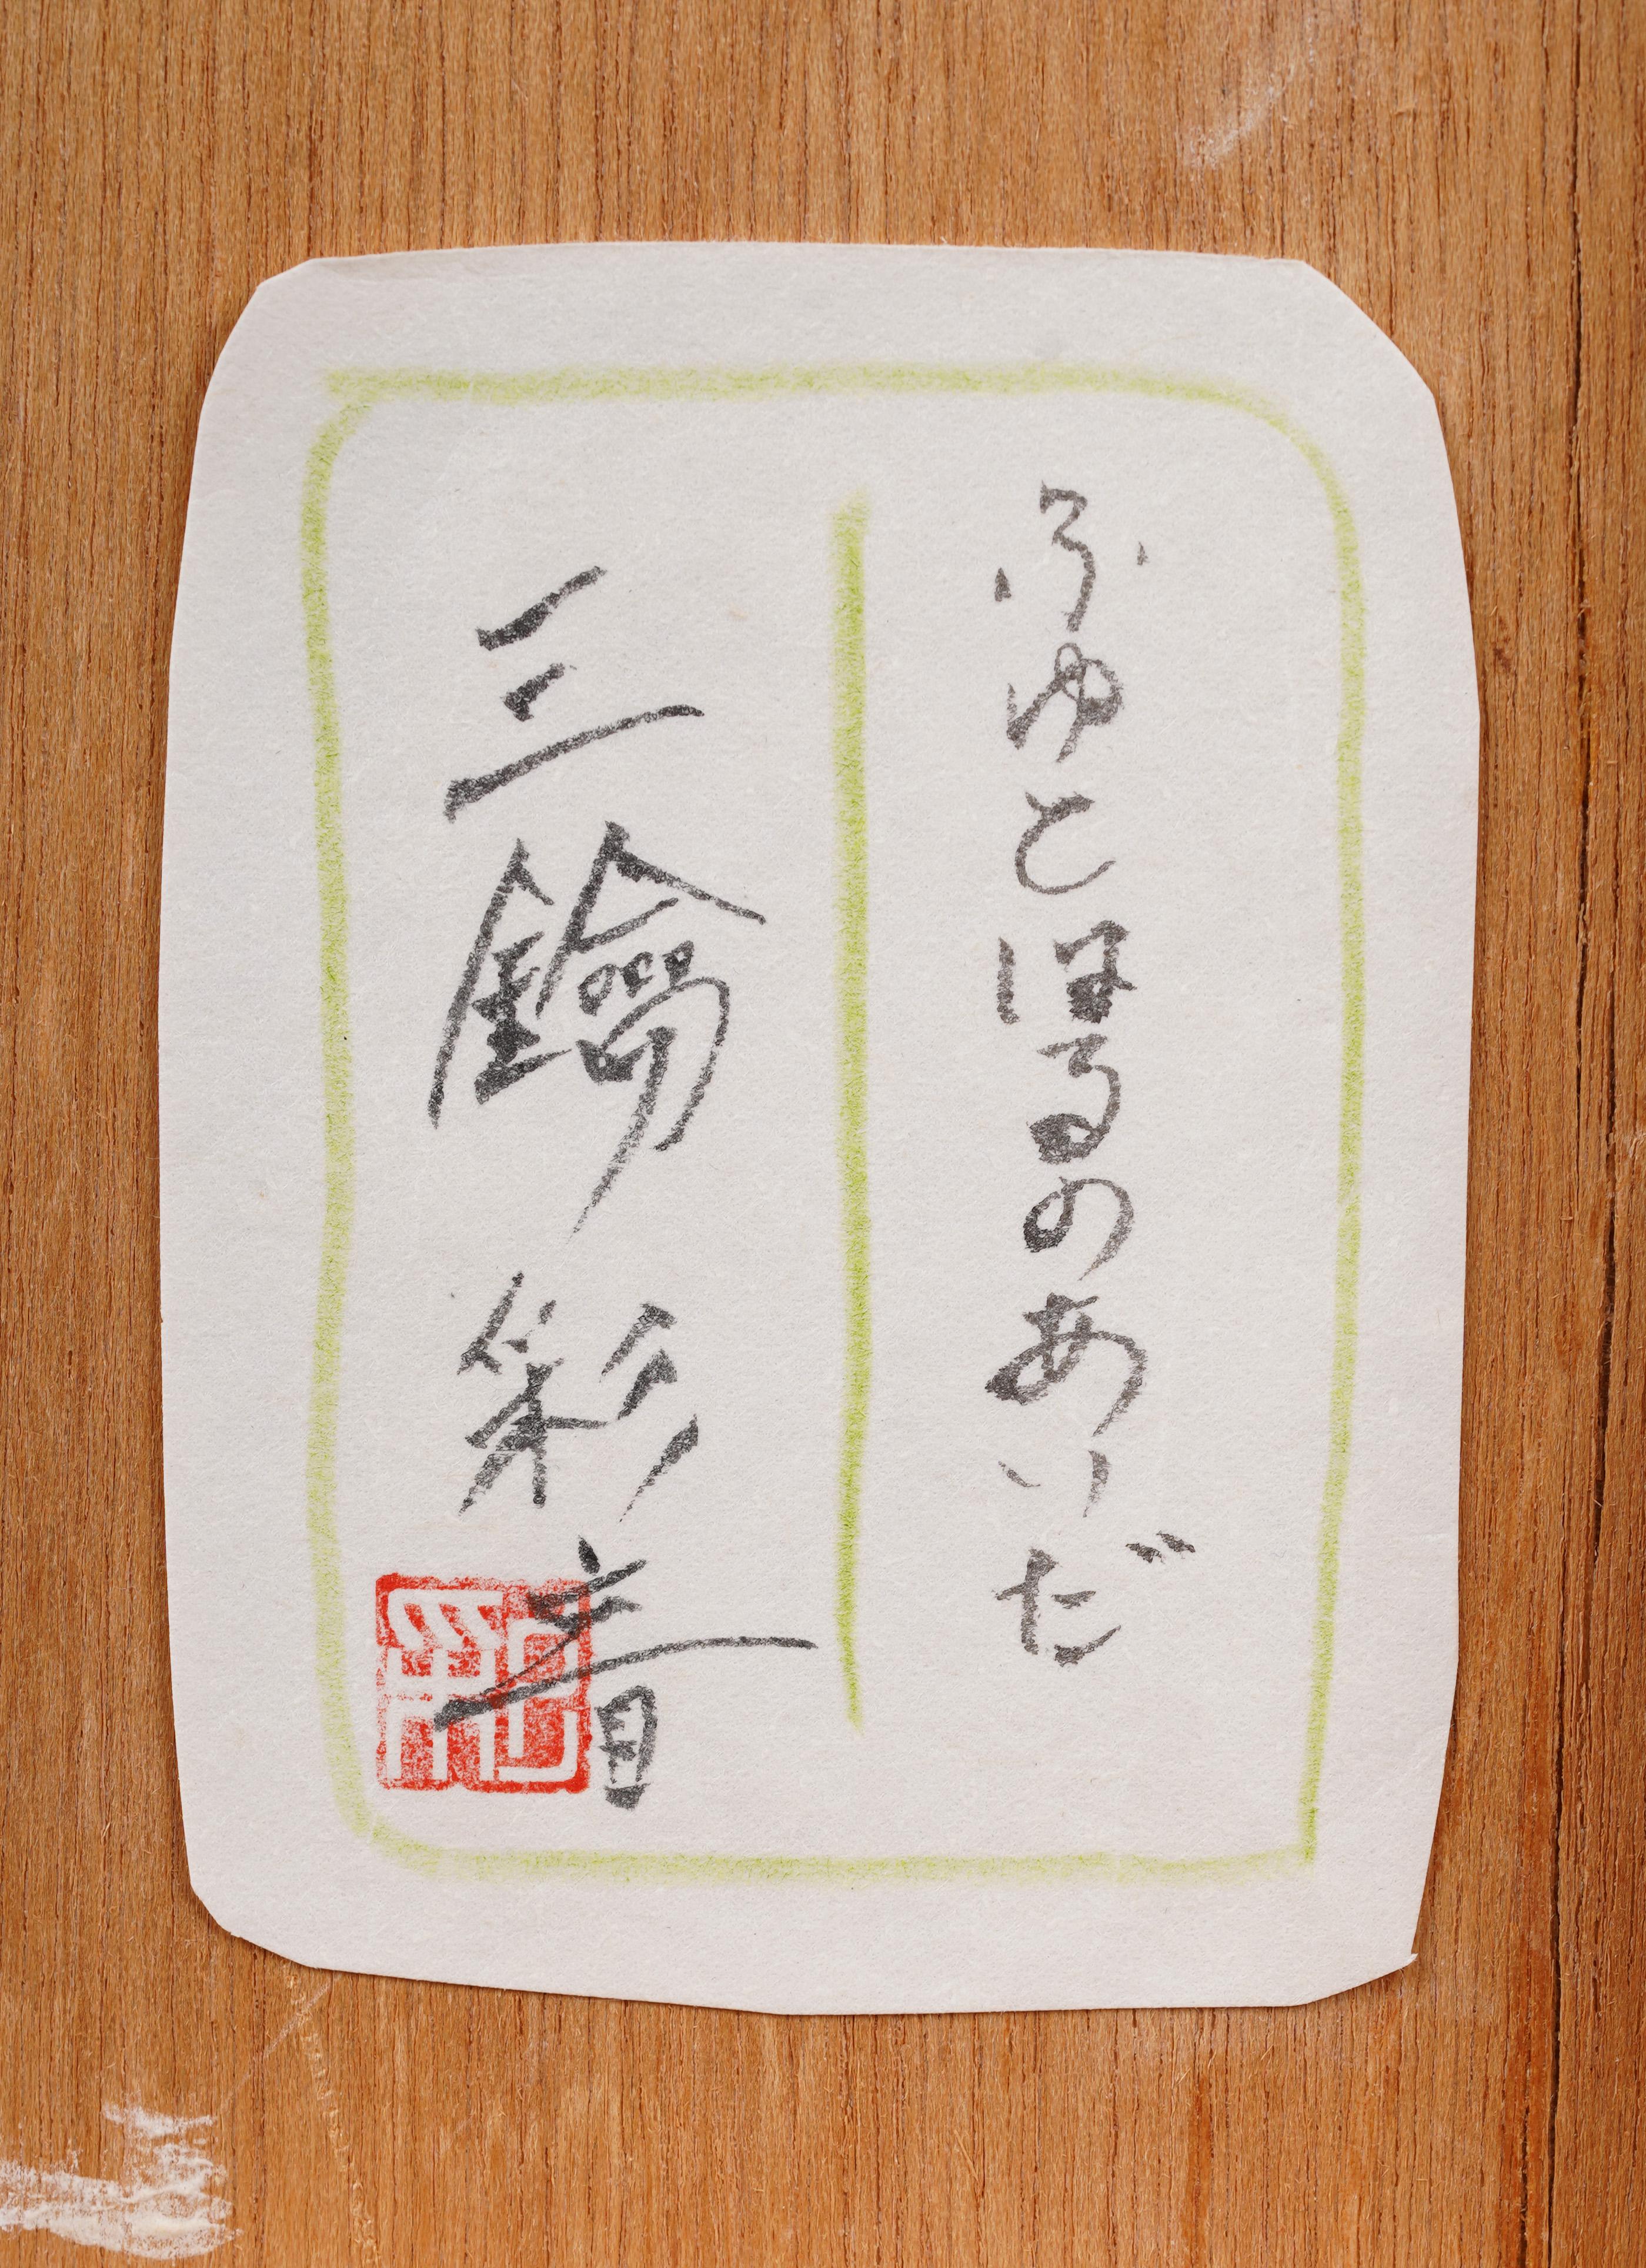 ふゆとはるのあいだ
三鑰彩音